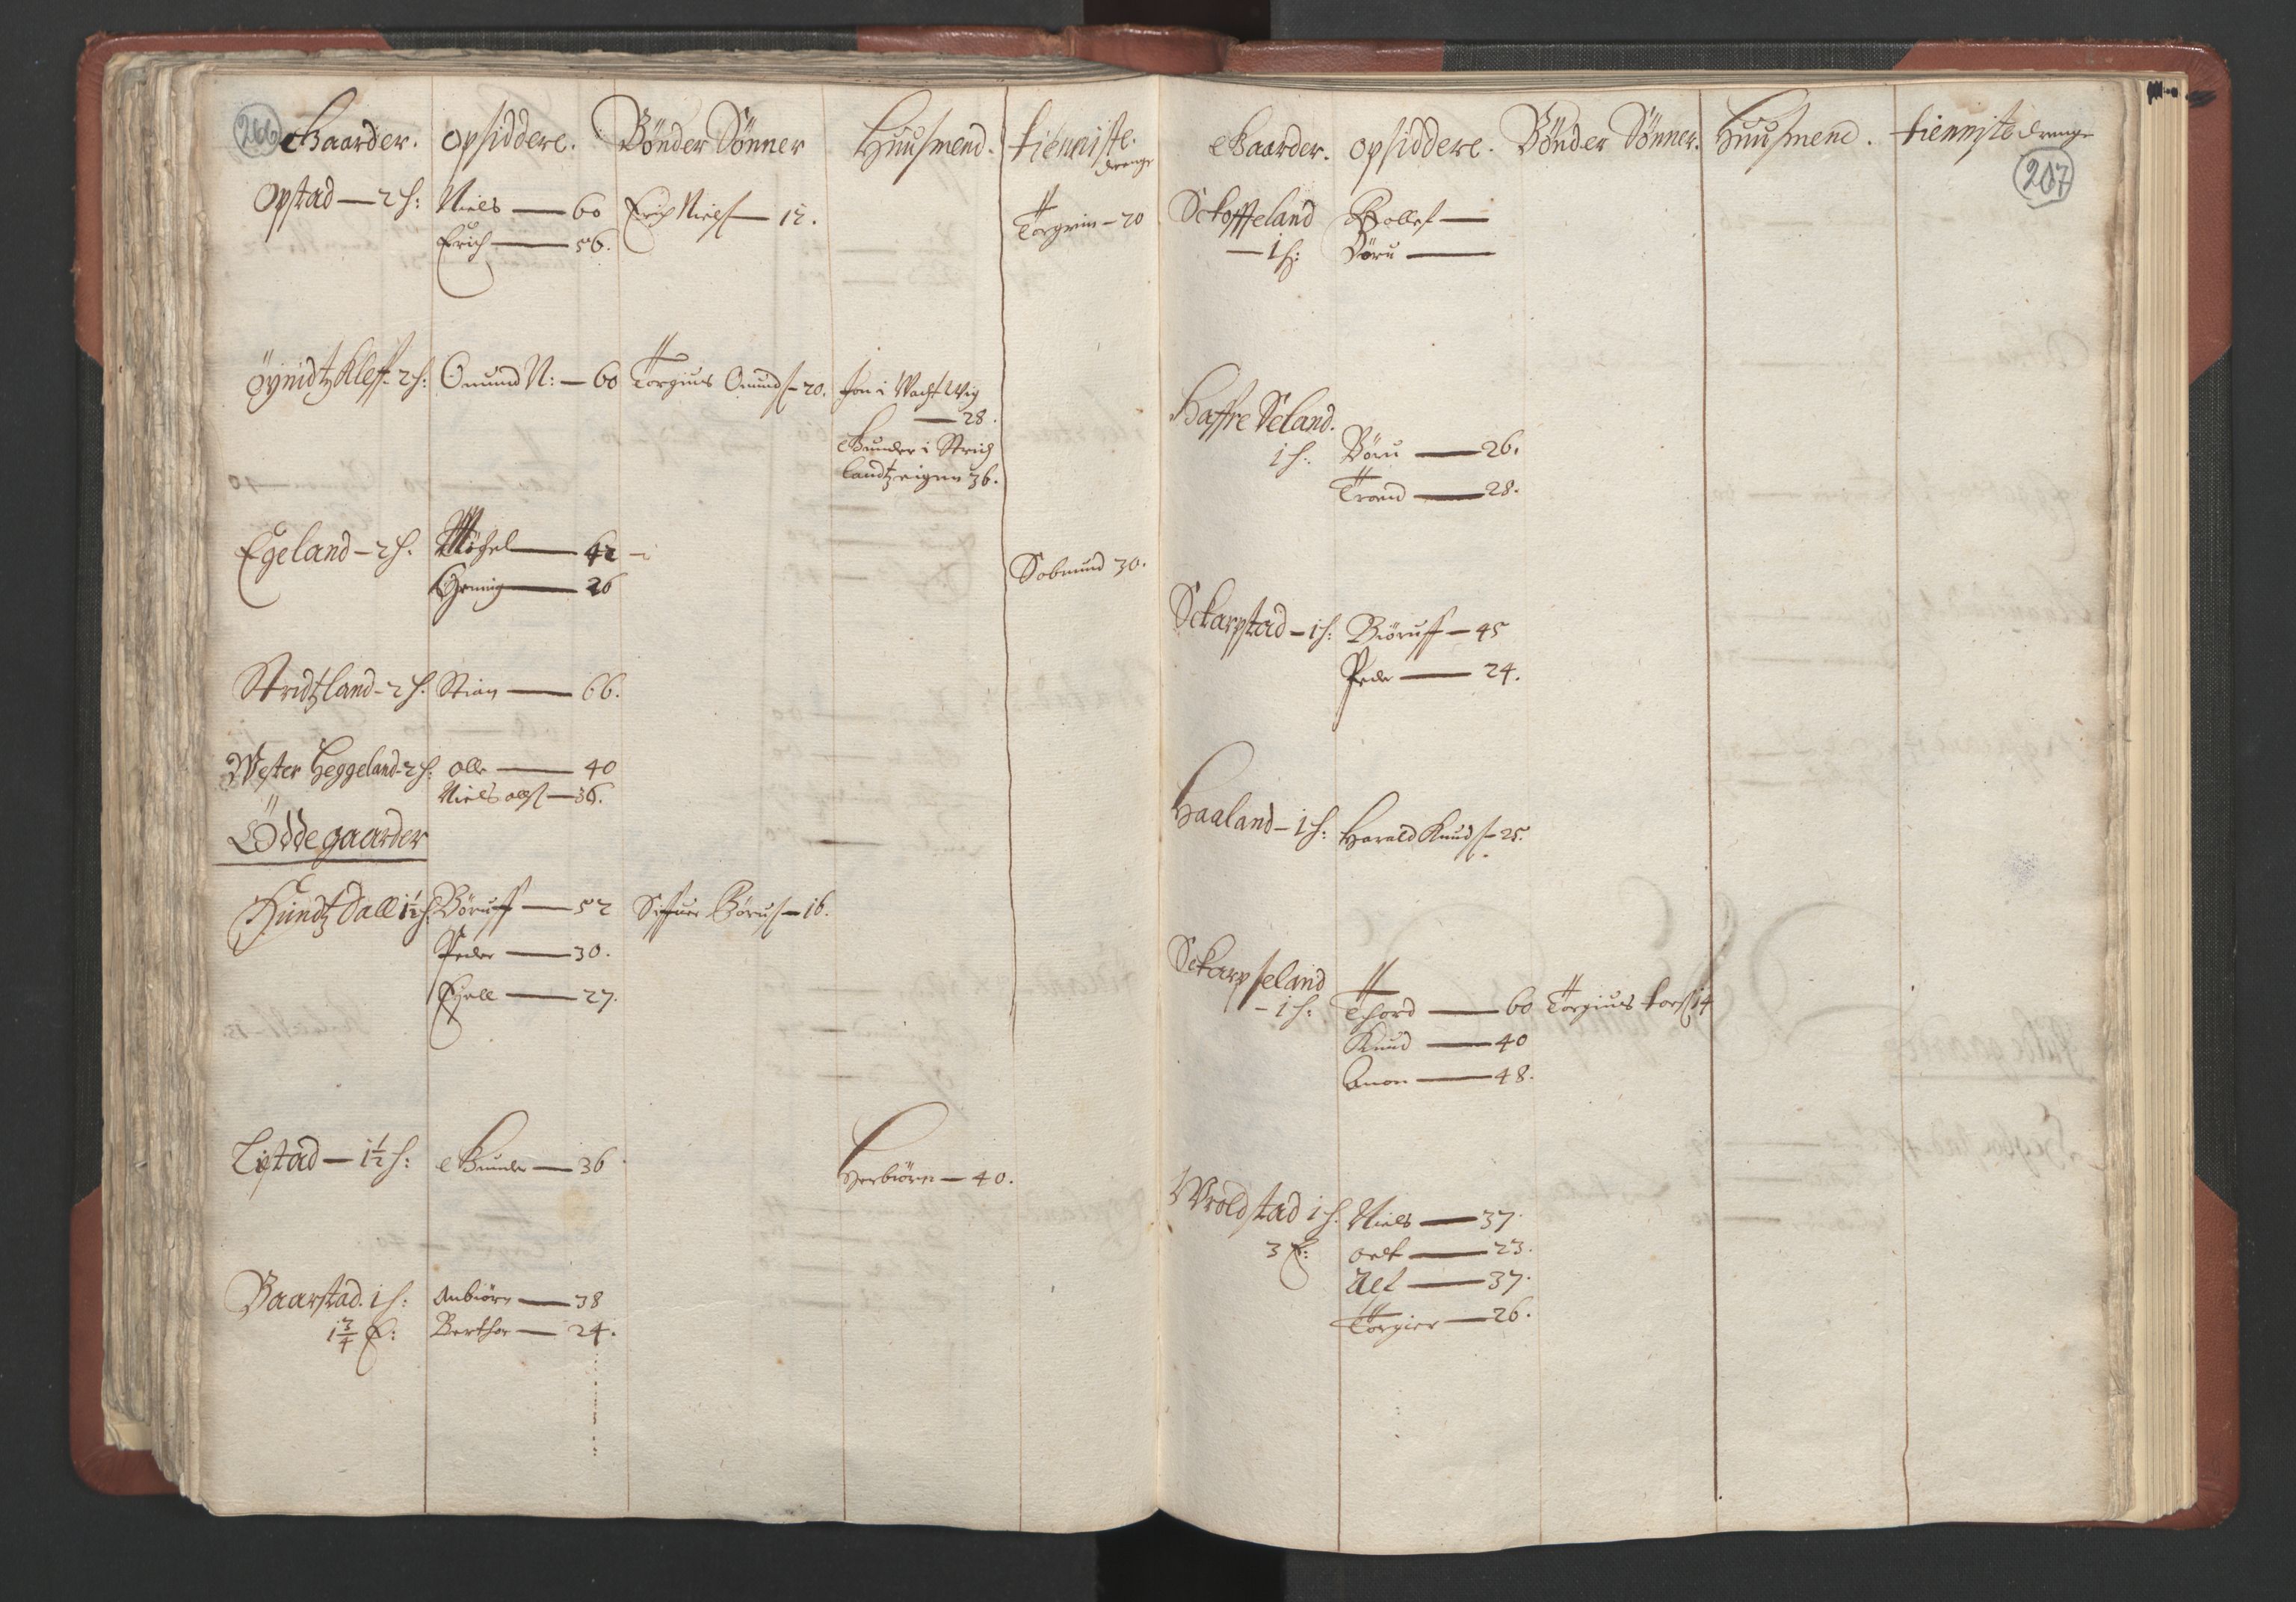 206 Gaarder. opsiddere. Bönder Sönner Huusmend. tienniste
drenge
Opstad — 2 h: Niels — 60 Erich Niels — 12. Torgrim – 20
Erich — 56.
Öynidtz Kleff – 2 h: Omund N: — 60 Torgius Omunds – 20. Jon i
— 28.
Gunder i Strich
landtz eigen 36.
Egeland – 2 h. Michel — 42
— 26 Sobmund 30.
Stridtzland – 2 h. Stian — 66.
Wester Heggeland – 2 h: Olle — 40
Niels olls — 36.
Ödde gaarder
Hundtzdall 1½ h: Böruff — 52 Siffuer Börus – 16.
Peder — 30.
Kield — 27.
Listad — 1½ h: Gunder — 36 Herbiörn — 40.
Baarstad. 1 h: Anbiörn — 38
1¾ E: Berthor — 24.
Gaarder. opsiddere. Bönder Sönner. Huusmend. tienniste drenge
207
Sckoffteland Rollef —
— 1 h: Böru —
Haffre Seland.
1 h: Böru — 26.
Trond — 28.
Sckarpstad – 1 h: Biöruff — 45
Peder — 24.
Haaland – 1 h: Harald Knuds – 25.
Sckarpseland
– 1 h: Thord — 60 Torgius tors 14
Knud — 40
Anon — 48.
Wroldstad 1 h. Niels — 37.
3 E: — 23.
Alf — 37.
Torgier — 26.